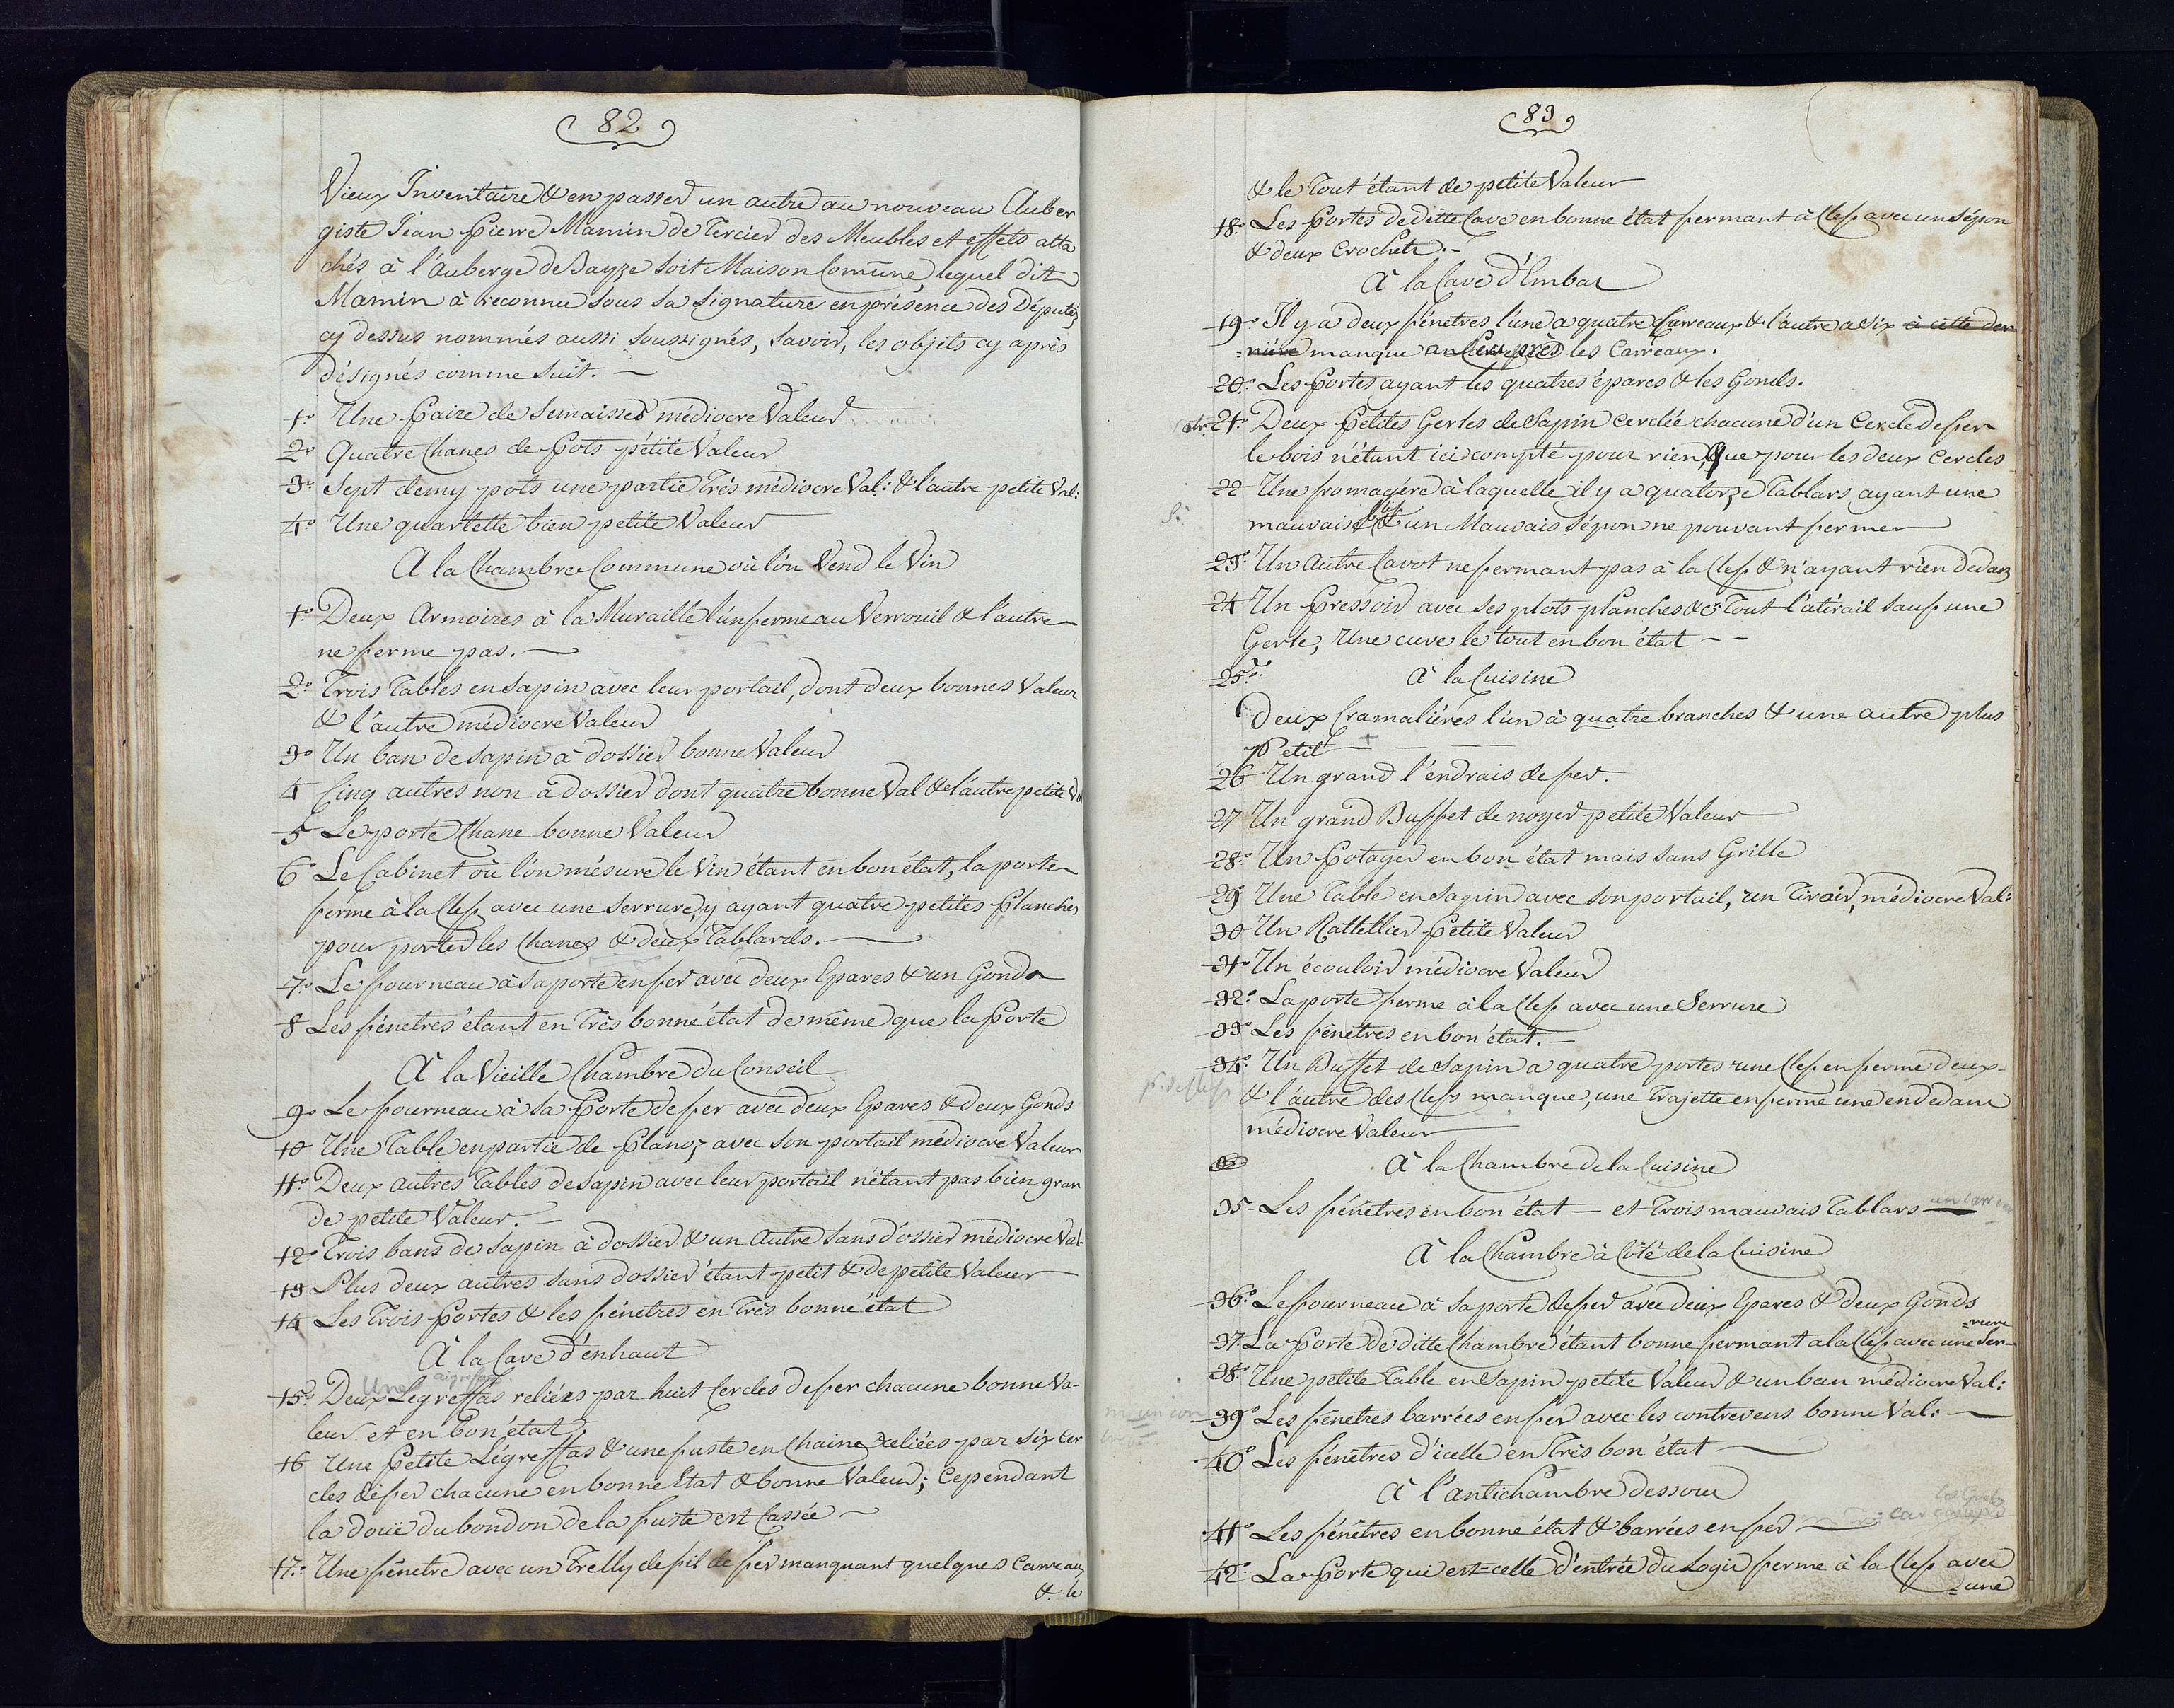 82
Vieux Inventaire & en passer un autre au nouveau Auber
giste Jean Pierre Mamin de Tercier des Meubles et effets atta
chés à l'auberge de Bayze soit Maison Comune lequel dit
Mamin à reconnu sous sa signature en présence des Députés
cy dessus nommés aussi soussignés, savoir, les objets cy après
désignés comme suit. —
1.o Une Paire de Semaisses médiocre Valeur
2.o Quatre Chanes de Pots pétite Valeur
3.o Sept demy pots une partie Très médiocre Val: & l'autre petite Val:
4.o Une quartette bien petite Valeur
A la Chambre Commune où l'ón Vend le Vin
1.o Deux Armoires à la Muraille l'un ferme au Verrouil & l'autre
ne ferme pas. —
2.o Trois Tables en sapin avec leur portail, dont deux bonnes Valeur
& l'autre médiocre Valeur
3.o Un ban de sapin à dossier bonne Valeur
4 Cinq autres non à dossier dont quatre bonne Val & l'autre petite Va
5 Le porte Chane bonne Valeur
6.o Le Cabinet où l'ón mésure le Vin étant en bon état, la porte
ferme à la Clef avec une serrure, y ayant quatre petites Planches
pour porter les Chanes & deux Tablards. —
7.o Le fourneau à sa porte en fer avec deux Epares & un Gonds
8 Les fénetres étant en Très bonne état de même que la Porte
À la Vieille Chambre du Conseil
9.o Le fourneau à sa Porte de fer avec deux Epares & deux Gonds
10 Une Table en partie de Plane, avec son portail médiocre Valeur
11.o Deux autres Tables de sapin avec leur portail n'étant pas bien gran
de petite Valeur. —
12.o Trois bans de sapin à dossier & un Autre sans dossier médiocre Val-
13 Plus deux autres sans dossier étant petit & de petite Valeur
14 Les Trois Portes & les fénetres en Très bonne état
À la Cave d'énhaut
Une
15.o Deux Legreffas reliées par huit Cercles de fer chacune bonne Va-
leur et en bon état
16 Une Petite Légreffas & une fuste en Chaine reliées par six Cer
cles de fer chacune en bonne Etat & bonne Valeur; Cependant
la doüe du bondon de la fuste est Cassée —
17.o Une fénetre avec un Trelly de fil de fer manquant quelques Carreaux
& le
83
& le Tout étant de petite Valeur
18.o Les Portes de ditte Cave en bonne état fermant à Clef avec un sépon
& deux Crochets. —
À la Cave d'Embas
19.o Il y a deux fénetres l'une a quatre Carreaux & l'autre a six à cette der
=nière manque les Carreaux.
20.o Les Portes ayant les quatres épares & les Gonds.
21.o Deux Petites Gerles de Sapin cerclée chacune d'un Cercle de fer
le bois n'étant ici compté pour rien, Que pour les deux Cercles
22 Une fromagére à laquelle il y a quatorze Tablars ayant une
mauvais Clef & un Mauvais sépon ne pouvant fermer
23.o Un Autre Cavot ne fermant pas à la Clef & n'ayant rien dedans
24 Un Pressoir avec ses plots planches &c.a Tout l'atirail sauf une
Gerle, Une cuve le tout en bon état — —
25.o À la Cuisine
Deux Cramaliéres l'un à quatre branches & une autre plus
Petit — — —
26 Un grand l'endrais de fer.
27 Un grand Buffet de noyer petite Valeur
28.o Un Potager en bon état mais sans Grille
29 Une Table en Sapin avec son portail, un Tiroir, médiocre Val:
30 Un Rattellier Petite Valeur
31.o Un écouloir médiocre Valeur
32.o La porte ferme à la Clef avec une Serrure
33.o Les fénetres en bon état. —
34.o Un Buffet de Sapin a quatre portes une Clef en ferme deux
& l'autre des Clefs manque, une Trajette en ferme une en dedans
médiocre Valeur
À la Chambre de la Cuisine
35 - Les fénêtres en bon état — et Trois mauvais Tablars
À la Chambre à Côté de la Cuisine
36.o Le fourneau à sa porte de fer avec deux Epares & deux Gonds
37. La Porte de ditte Chambre étant bonne fermant a la Clef avec une Ser-
=rure
38.o Une petite Table en Sapin petite Valeur & un ban médiocre Val:
39.o Les fénetres barrées en fer avec les contrevens bonne Val: —
40.o Les fénêtres d'icelle en Très bon état —
À l'antichambre dessous
41.o Les fénêtres en bonne état & barrées en fer —
42.o La Porte qui est celle d'entrée du Logis ferme à la Clef avec
=une